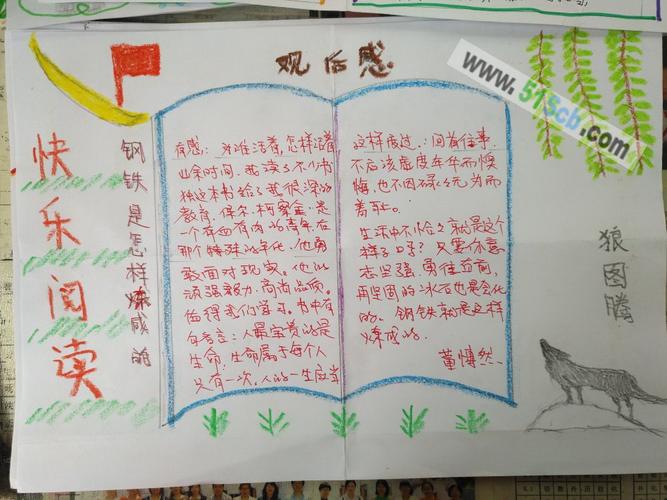 观后感
www.515cb.com
快乐阅读
钢铁是怎样炼成的
有感：为谁活着，怎样活着
时间，我读了不少书
独这本书给了我很深的
教育，保尔·柯察金，是
一个有血有肉的青年，在
那个特殊的年代，他勇
敢面对现实。他的
顽强毅力，高尚品质。
值得我们学习。书中有
句名言：人最宝贵的是
生命，生命属于每个人
只有一次，人的一生应当
这样度过：回首往事，
不后该虚度年华而懊
悔，也不因碌碌无为而
羞耻。
生活中不恰就是这个
样子吗？只要你意
志坚强，勇往直前，
再坚固的冰石也是会化
的。钢铁就是这样
炼成的。
董慎然
狼图腾